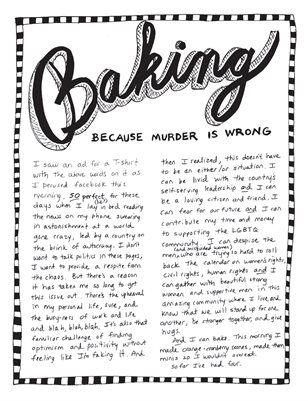 Baking
BECAUSE MURDER IS WRONG
I saw an ad for a T-shirt
with the above words on it as
I perused facebook this
morning. SO perfect for these
days when I lay in bed reading
the news on my phone swearing
in astonishment at a world
gone crazy, led by a country on
the brink of autocracy. I don't
want to talk politics in these pages,
I want to provide a respite from
the chaos. But there's a reason
it has taken me so long to get
this issue out. There's the upheaval
in my personal life, sure, and
the busyness of work and life
and blah, blah, blah. It's also that
familiar challenge of finding
optimism and positivity without
feeling like I'm faking it. And
then I realized, this doesn't have
to be an either/or situation. I
can be livid with the country's
self-serving leadership and I can
be a loving citizen and friend. I
can fear for our future and I can
contribute my time and money
to supporting the LGBTQ
community. I can despise the
men (and misguided women) who are trying to hard to roll
back the calendar on women's rights,
civil rights, human rights and I
can gather with beautiful strong
women and supportive men in this
amazing community where I live and
know that we will stand up for one
another, be stronger together, and give
hugs.
And I can bake. This morning I
made orange-cranberry scones, made them
minis so I wouldn't overeat.
So far I've had four.